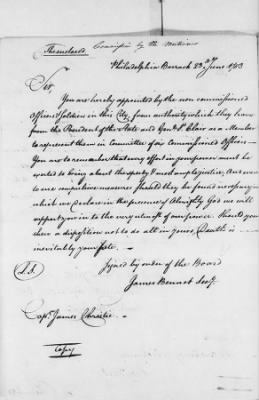 Thenselves Commission by the Mutineers
Philadelphia Barrack 23rd June 1783
Sir,
You are hereby appointed by the non commissioned
Officers & Soldiers in this City, from authority which they have
from the President of the State and Genl St. Clair as a Member
to represent them in Committee of six Commissioned Officers —
You are to remember that every effort in your power must be
exerted to bring about the speedy & most ample justice. And even
to use compulsive measures should they be found necessary in
which we declare in the presence of Almighty God we will
support you in to the very utmost of our power. Should you
shew a disposition not to do all in yours, Death is
inevitably your fate.
Signed by order of the Board
L.S.
James Bennet Secy.
Capt. James Christie
Copy